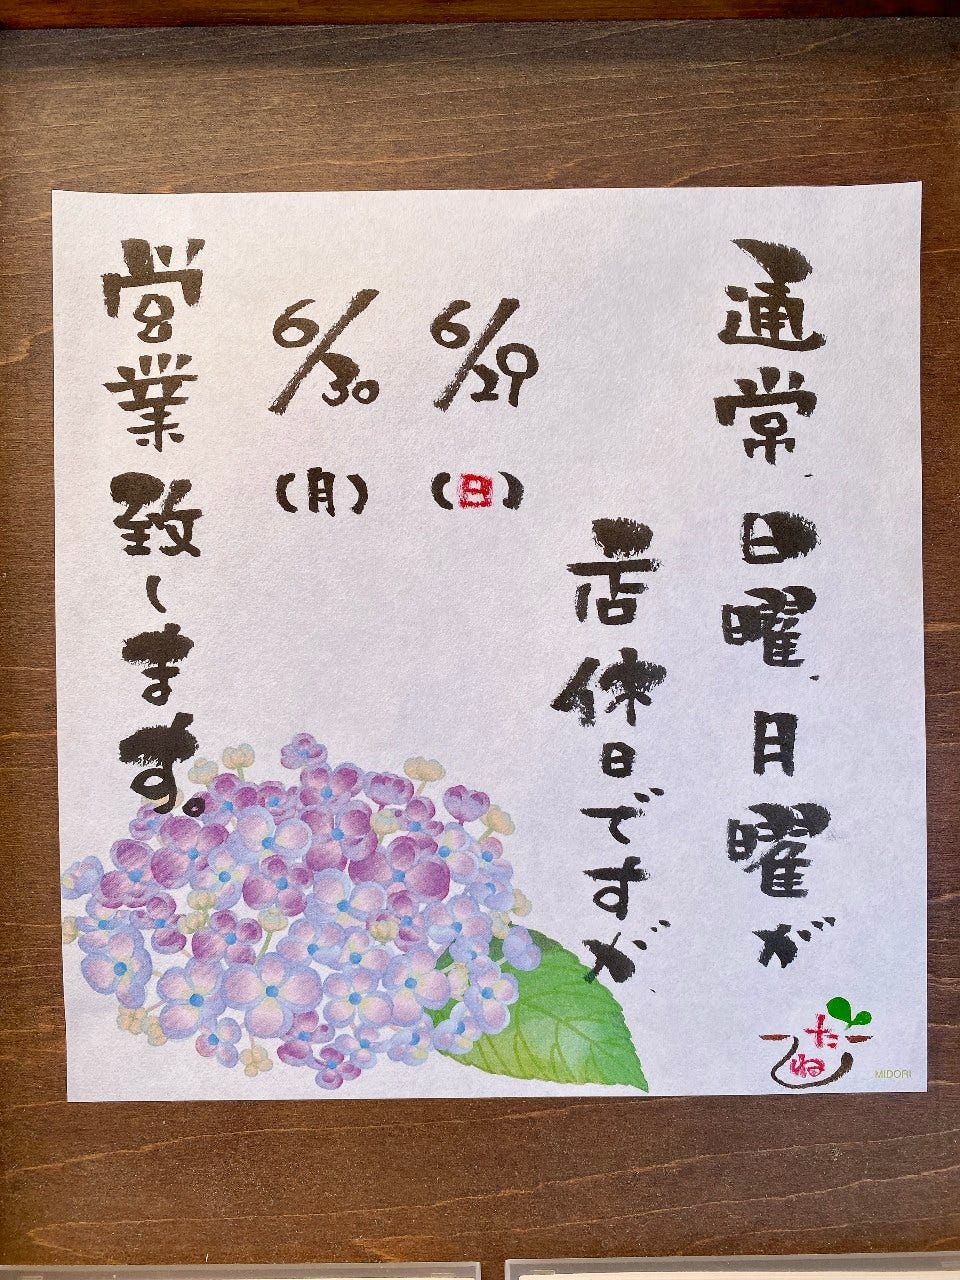 通常、日曜、月曜が
店休日ですが
6/29（日）
6/30（月）
営業致します。
たね
MIDORI